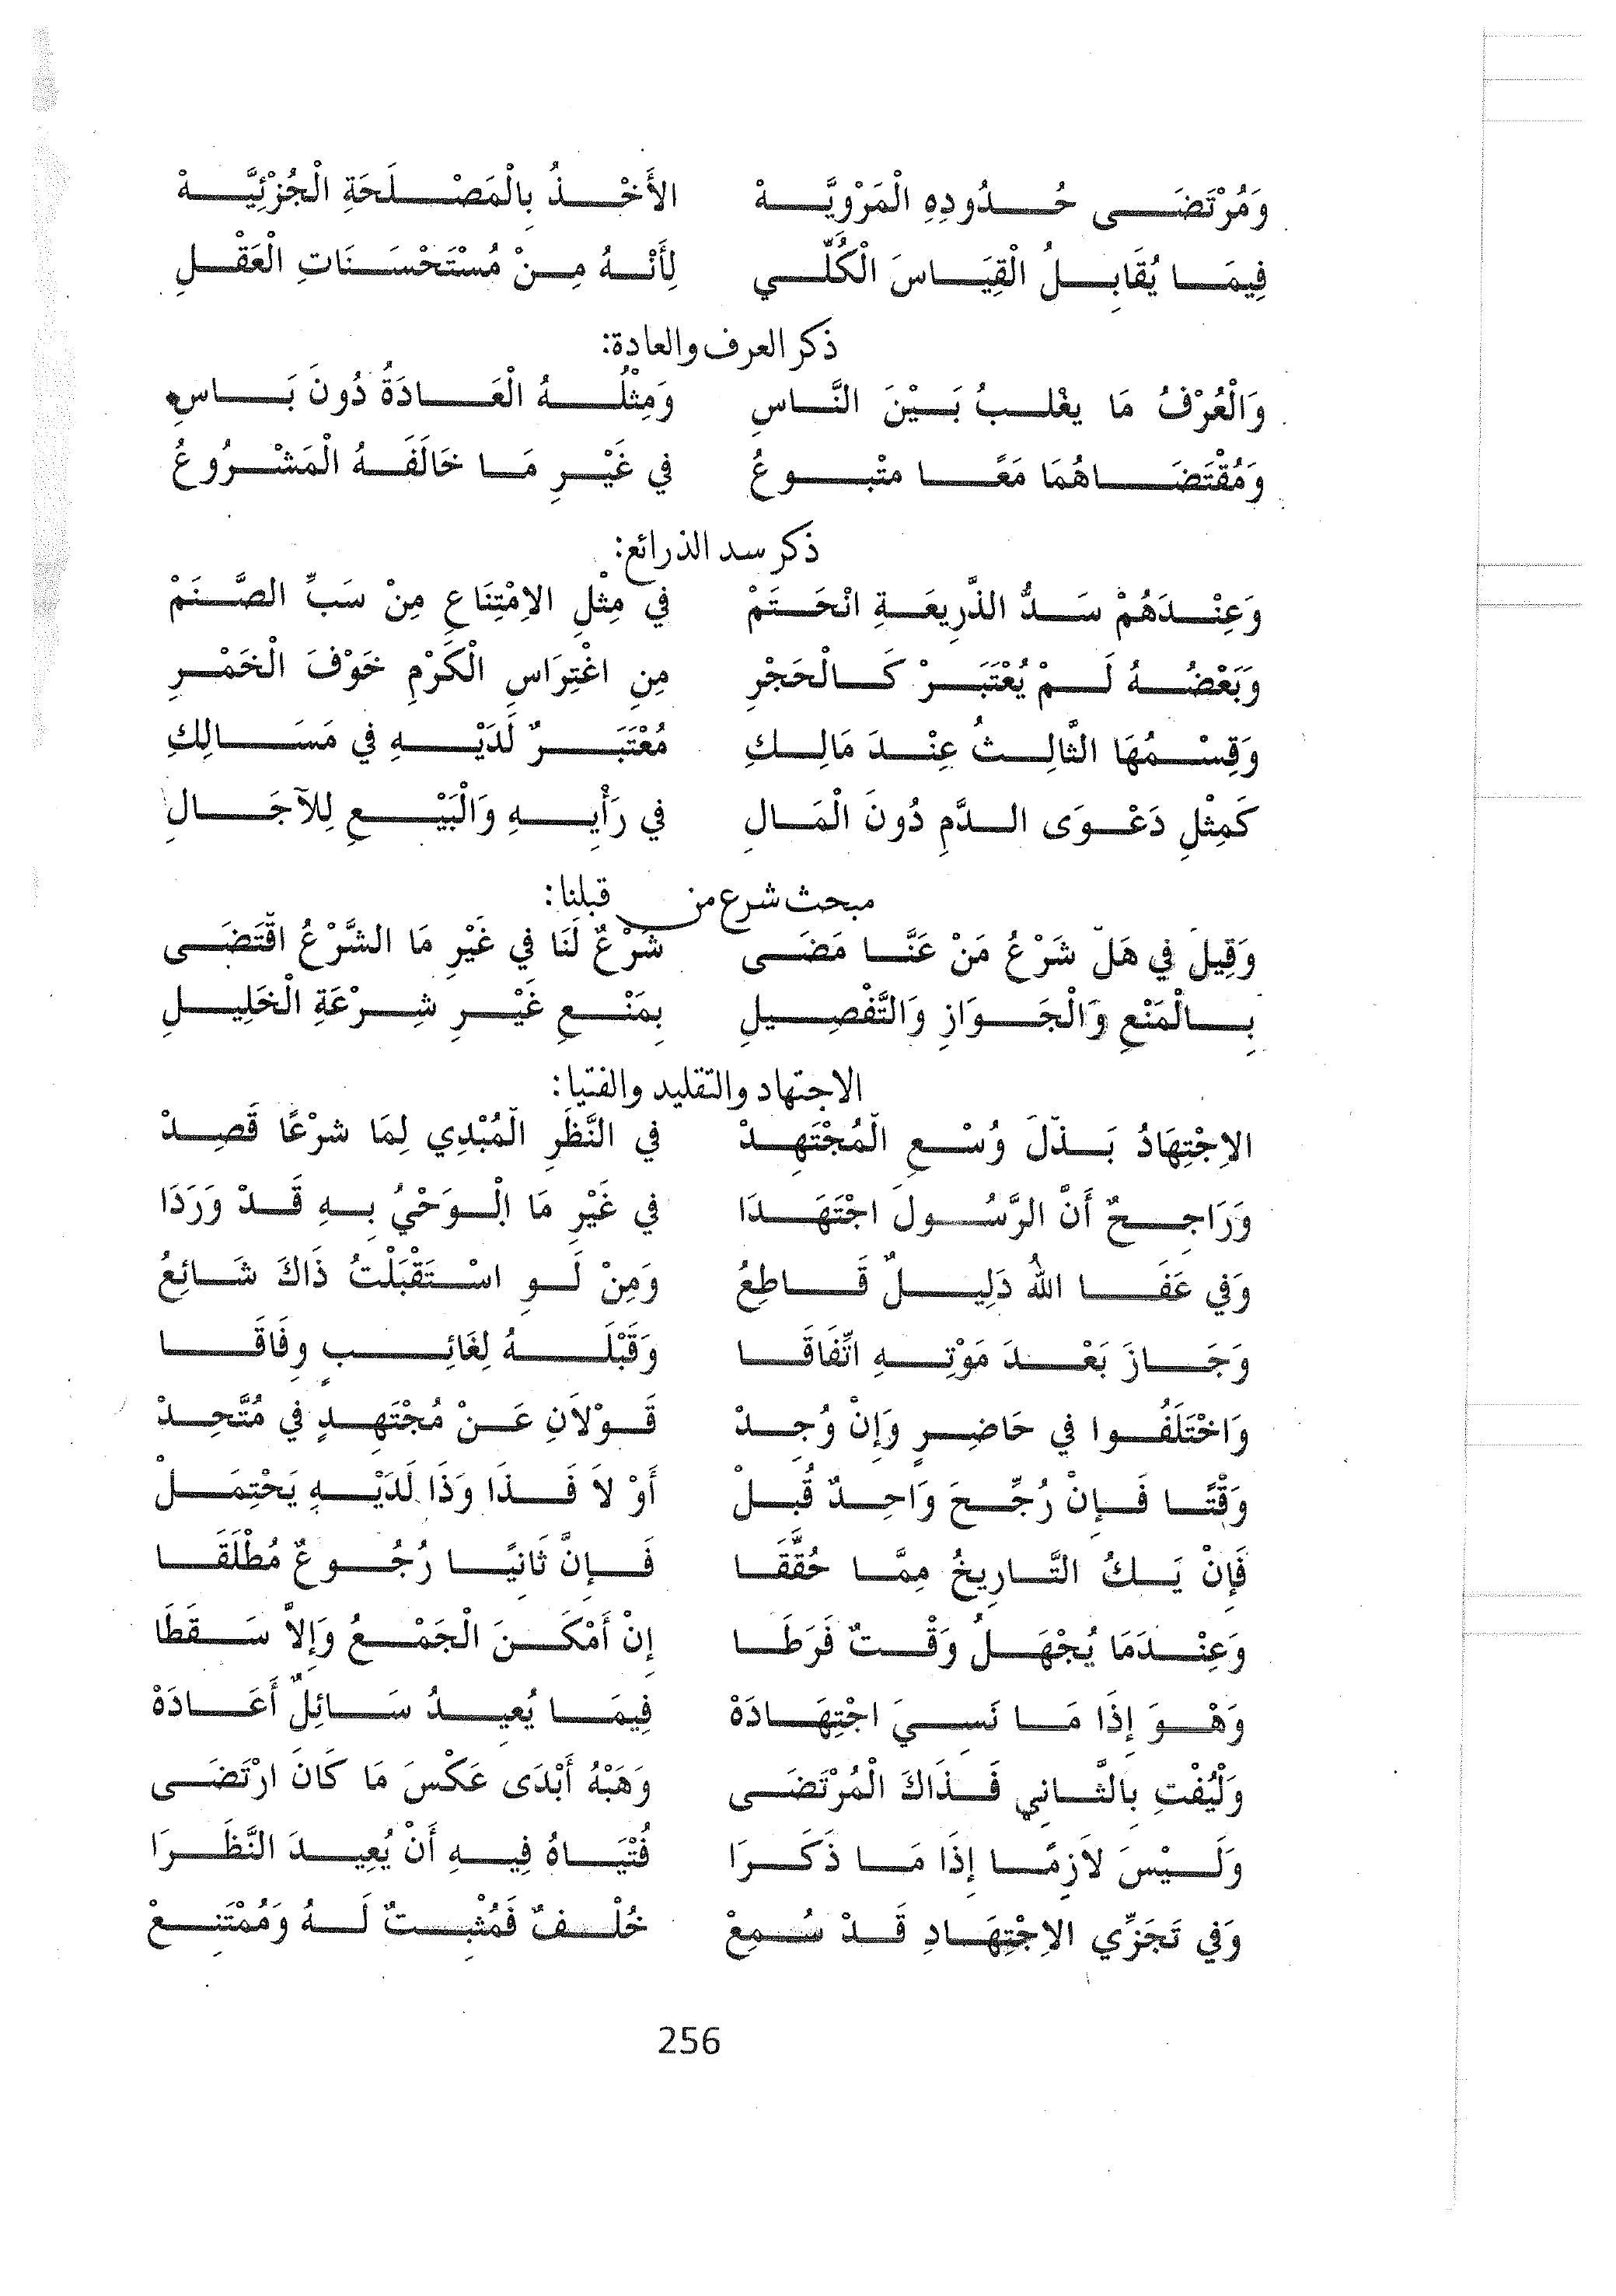 وَمُرْتَضَى حُدُودِهِ الْمَرْوِيَّهْ الأَخْذُ بِالْمَصْلَحَةِ الْجُزْئِيَّهْ
فِيمَا يُقَابِلُ الْقِيَاسَ الْكُلِّي لِأَنَّهُ مِنْ مُسْتَحْسَنَاتِ الْعَقْلِ
ذكر العرف والعادة:
وَالْعُرْفُ مَا يغْلبُ بَيْنَ النَّاسِ وَمِثْلُهُ الْعَادَةُ دُونَ بَاسِ
وَمُقْتَضَاهُمَا مَعًا متْبُوعُ فِي غَيْرِ مَا خَالَفَهُ الْمَشْرُوعُ
ذكر سد الذرائع:
وَعِنْدَهُمْ سَدُّ الذَّرِيعَةِ انْحَتَمْ فِي مِثْلِ الاِمْتِنَاعِ مِنْ سَبِّ الصَّنَمْ
وَبَعْضُهُ لَمْ يُعْتَبَرْ كَالْحَجْرِ مِنِ اغْتِرَاسِ الْكَرْمِ خَوْفَ الْخَمْرِ
وَقِسْمُهَا الثَّالِثُ عِنْدَ مَالِكِ مُعْتَبَرٌ لَدَيْهِ فِي مَسَالِكِ
كَمِثْلِ دَعْوَى الدَّمِ دُونَ الْمَالِ فِي رَأْيِهِ وَالْبَيْعِ لِلآجَالِ
مبحث شرع من قبلنا:
وَقِيلَ فِي هَلْ شَرْعُ مَنْ عَنَّا مَضَى شَرْعٌ لَنَا فِي غَيْرِ مَا الشَّرْعُ اقْتَضَى
بِالْمَنْعِ وَالْجَوَازِ وَالتَّفْصِيلِ بِمَنْعِ غَيْرِ شِرْعَةِ الْخَلِيلِ
الاجتهاد والتقليد والفتيا:
الاِجْتِهَادُ بَذْلَ وُسْعِ الْمُجْتَهِدْ فِي النَّظَرِ الْمُبْدِي لِمَا شرْعًا قَصِدْ
وَرَاجِحٌ أَنَّ الرَّسُولَ اجْتَهَدَا فِي غَيْرِ مَا الْوَحْيُ بِهِ قَدْ وَرَدَا
وَفِي عَفَا اللهُ دَلِيلٌ قَاطِعُ وَمِنْ لَوِ اسْتَقْبَلْتُ ذَاكَ شَائِعُ
وَجَازَ بَعْدَ مَوْتِهِ اتِّفَاقَا وَقَبْلَهُ لِغَائِبٍ وِفَاقَا
وَاخْتَلَفُوا فِي حَاضِرٍ وَإِنْ وُجِدْ قَوْلاَنِ عَنْ مُجْتَهِدٍ فِي مُتَّحِدْ
وَقْتًا فَإِنْ رُجِّحَ وَاحِدٌ قُبِلْ أَوْ لاَ فَذَا وَذَا لَدَيْهِ يَحْتِمَلْ
فَإِنْ يَكُ التَّارِيخُ مِمَّا حُقِّقَا فَإِنَّ ثَانِيًا رُجُوعٌ مُطْلَقَا
وَعِنْدَمَا يُجْهَلُ وَقْتٌ فَرَطَا إِنْ أَمْكَنَ الْجَمْعُ وَإِلاَّ سَقَطَا
وَهْوَ إِذَا مَا نَسِيَ اجْتِهَادَهْ فِيمَا يُعِيدُ سَائِلٌ أَعَادَهْ
وَلْيُفْتِ بِالثَّانِي فَذَاكَ الْمُرْتَضَى وَهَبْهُ أَبْدَى عَكْسَ مَا كَانَ ارْتَضَى
وَلَيْسَ لاَزِمًا إِذَا مَا ذَكَرَا فُتْيَاهُ فِيهِ أَنْ يُعِيدَ النَّظَرَا
وَفِي تَجَزِّي الاِجْتِهَادِ قَدْ سُمِعْ خُلْفٌ فَمُثْبِتٌ لَهُ وَمُمْتَنِعْ
256